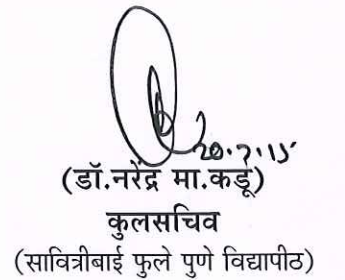 (डॉ.नरेंद्र मा.कडू)
कुलसचिव
(सावित्रीबाई फुले पुणे विद्यापीठ)